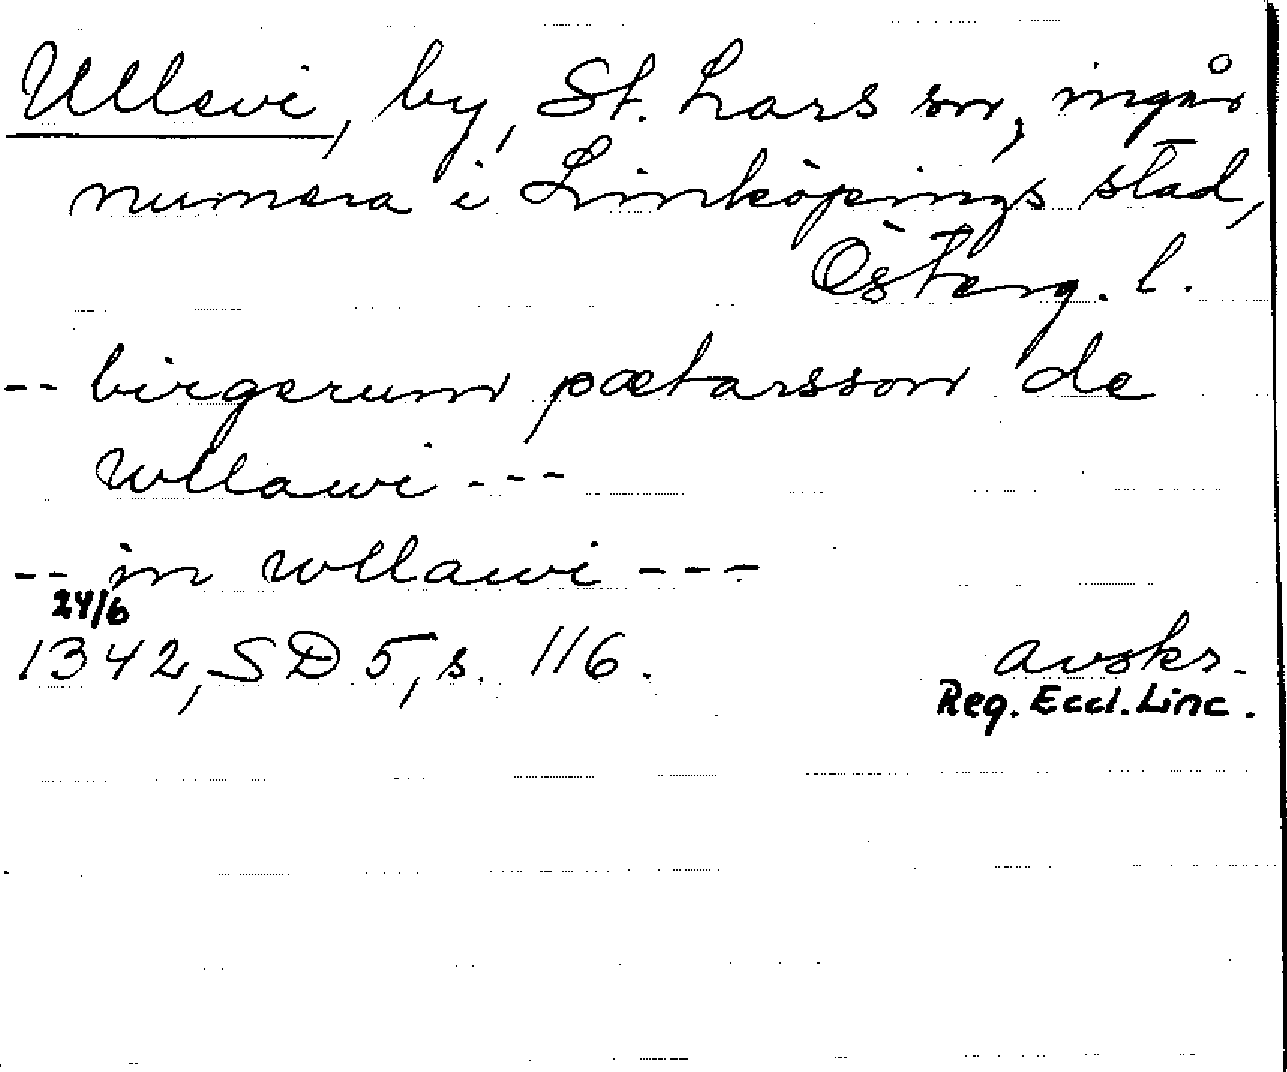 Ullevi, by, St. Lars sn, ingår
numera i Linköpings stad,
Österg. l.
-- birgerum pætarsson de
wllawi ---
-- in wllawi ---
24/6
1342, SD 5, s. 116. avskr.
Reg. Eccl. Linc.